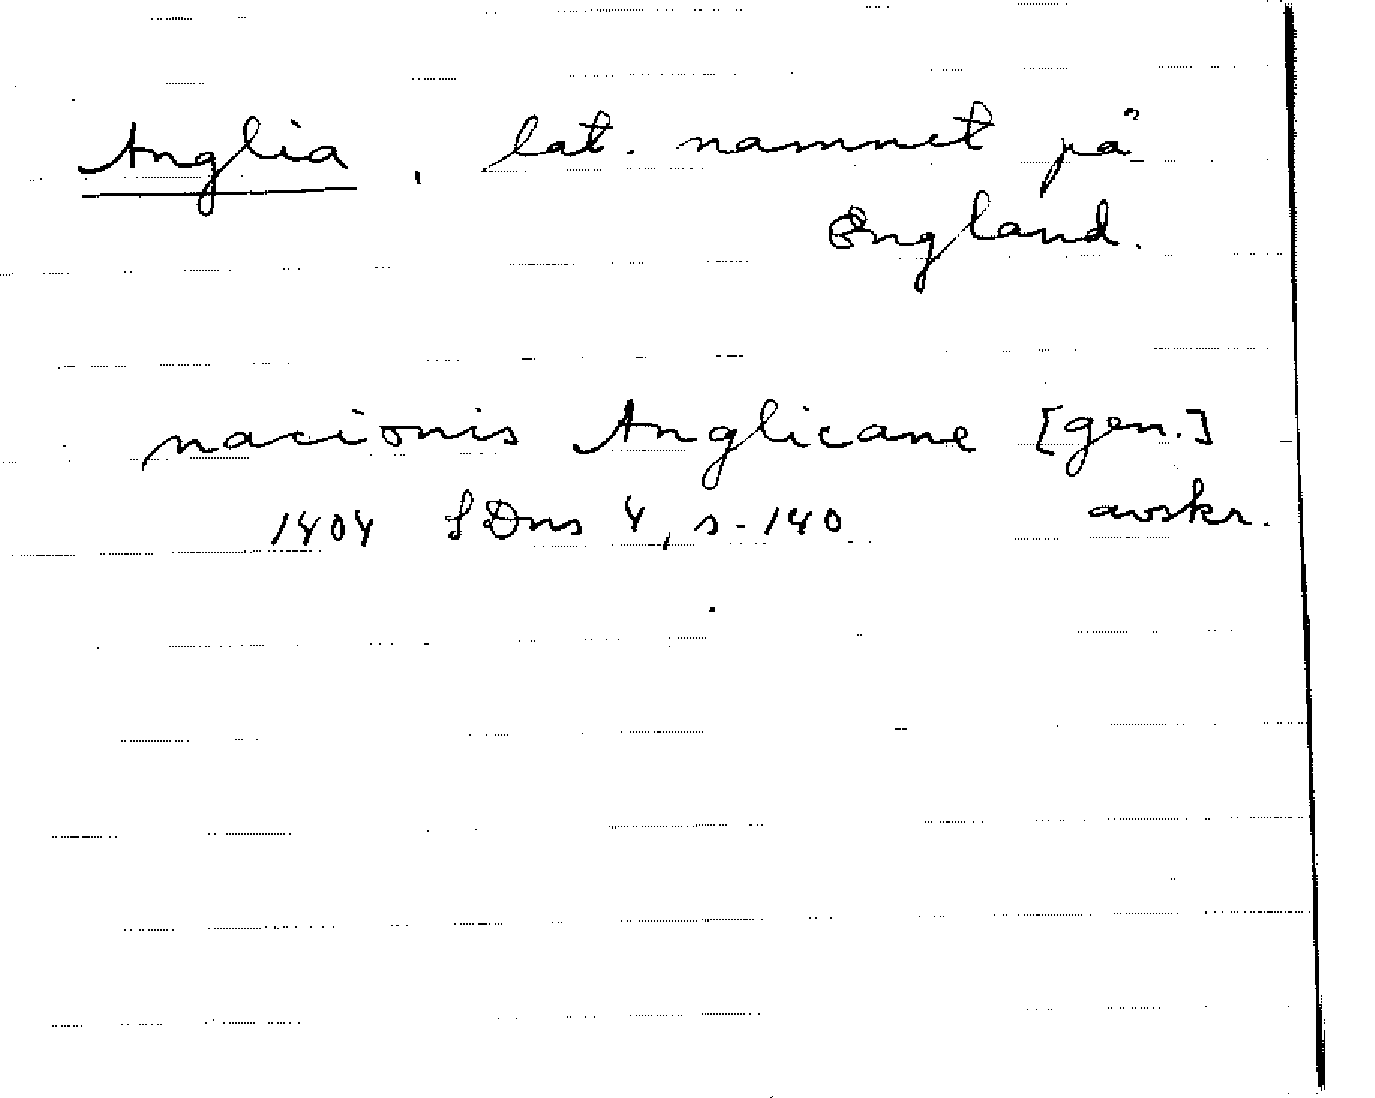 Anglia, lat. namnet på
England.
nacionis Anglicane [gen.]
1404 SDns 4, s. 140 avskr.